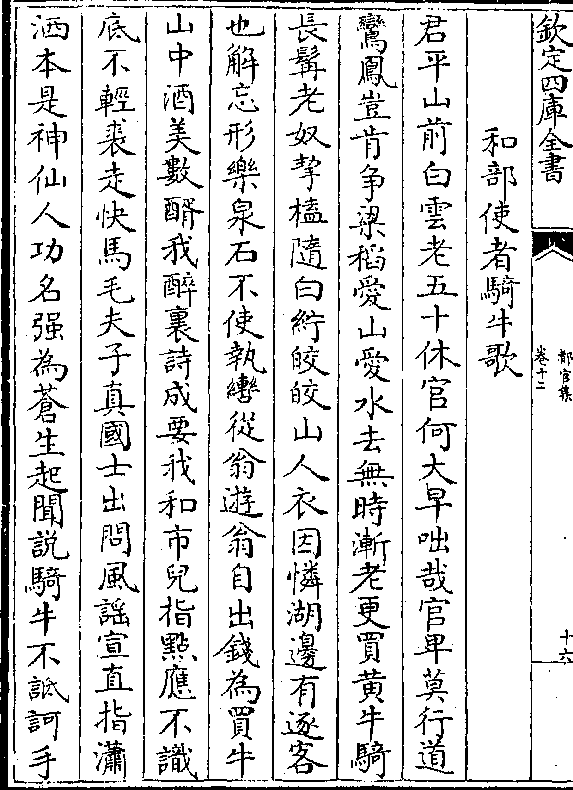 欽定四庫全書
都官集
卷十二
十六
和部使者騎牛歌
君平山前白雲老五十休官何大早咄哉官卑莫行道
鸞鳳豈肯争粱稻愛山愛水去無時漸老更買黄牛騎
長髯老奴挈榼隨白紵皎皎山人衣因憐湖邊有逐客
也解忘形樂泉石不使執轡從翁遊翁自出錢為買牛
山中酒美數酹我醉裏詩成要我和市兒指㸃應不識
底不輕裘走快馬毛夫子真國士出問風謡宣直指瀟
洒本是神仙人功名强為蒼生起聞説騎牛不詆訶手